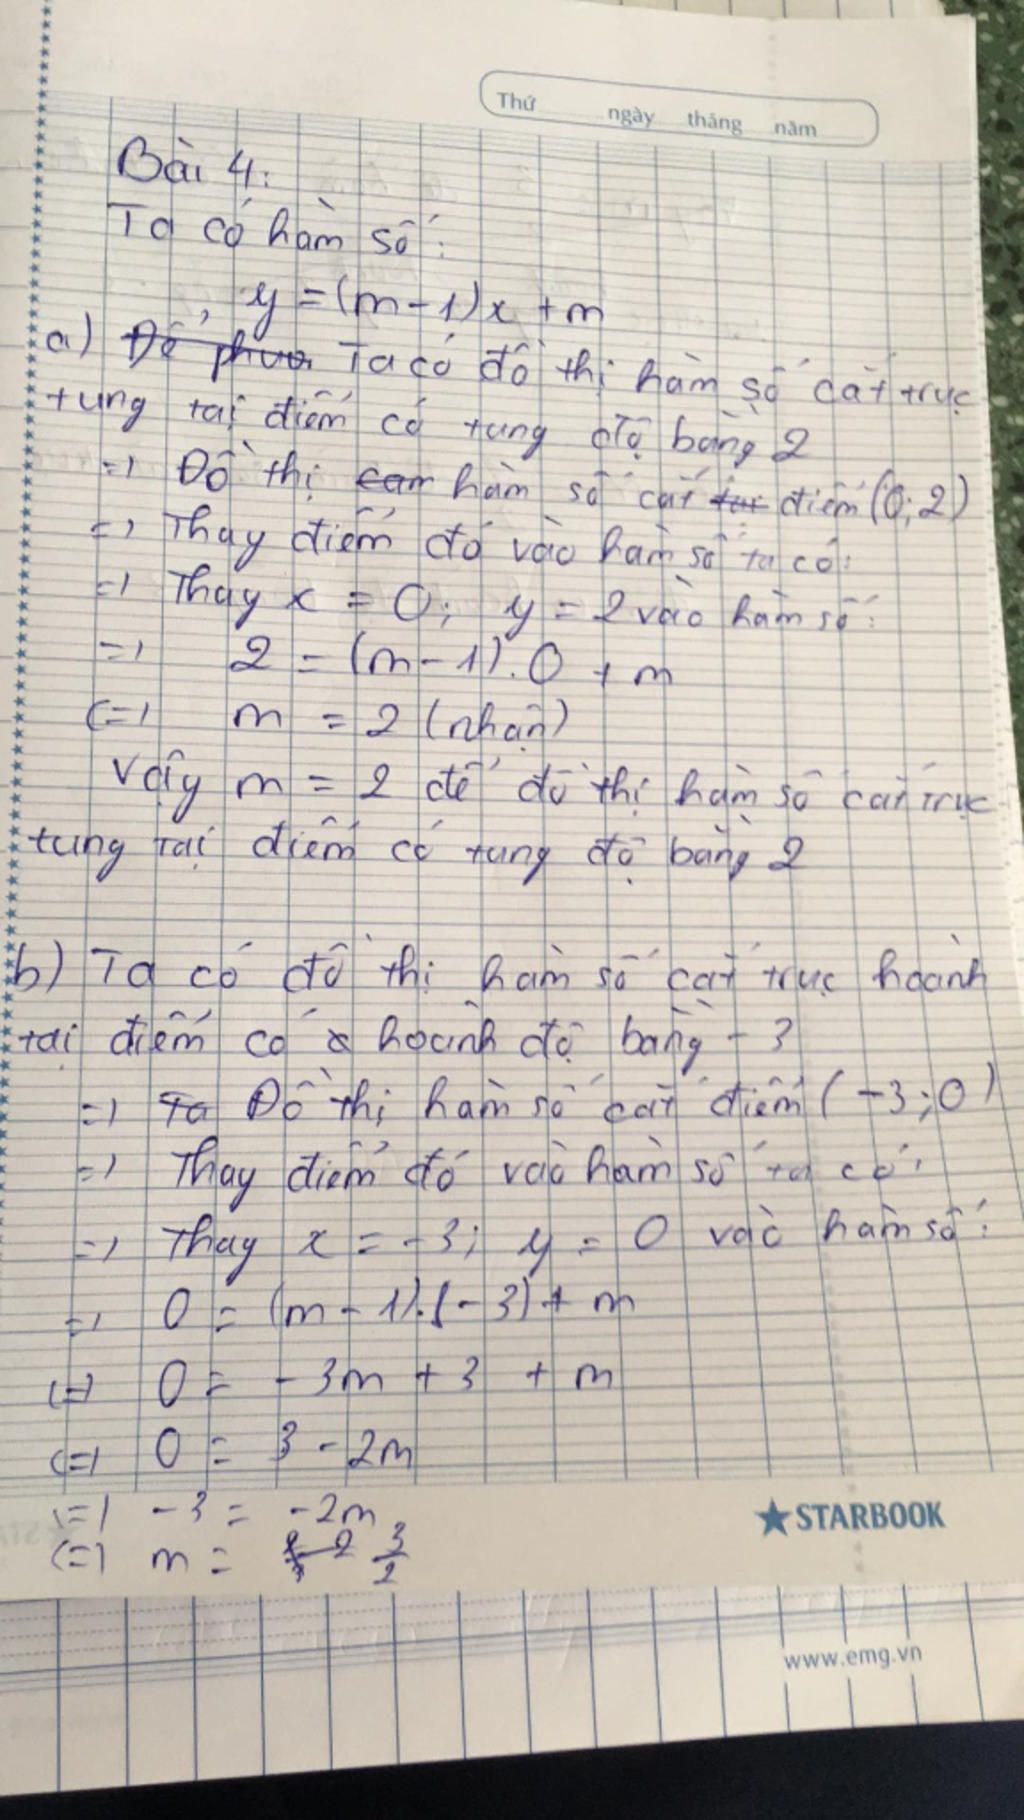 Thứ ngày tháng năm
Bài 4:
Ta có hàm số:
y = (m - 1)x + m
a) Để phươ Ta có đồ thị hàm số cắt trục
tung tại điểm có tung độ bằng 2
=> Đồ thị hàm số cắt tại điểm (0; 2)
=> Thay điểm đó vào hàm số ta có:
=> Thay x = 0; y = 2 vào hàm số:
=> 2 = (m - 1). 0 + m
<=> m = 2 (nhận)
Vậy m = 2 để đồ thị hàm số cắt trục
tung tại điểm có tung độ bằng 2
b) Ta có đồ thị hàm số cắt trục hoành
tại điểm có hoành độ bằng - 3
=> Ta Đồ thị hàm số cắt điểm (-3; 0)
=> Thay điểm đó vào hàm số ta có:
=> Thay x = -3; y = 0 vào hàm số:
=> 0 = (m - 1).(-3) + m
<=> 0 = - 3m + 3 + m
<=> 0 = 3 - 2m
<=> -3 = -2m
<=> m = 3/2
★STARBOOK
www.emg.vn